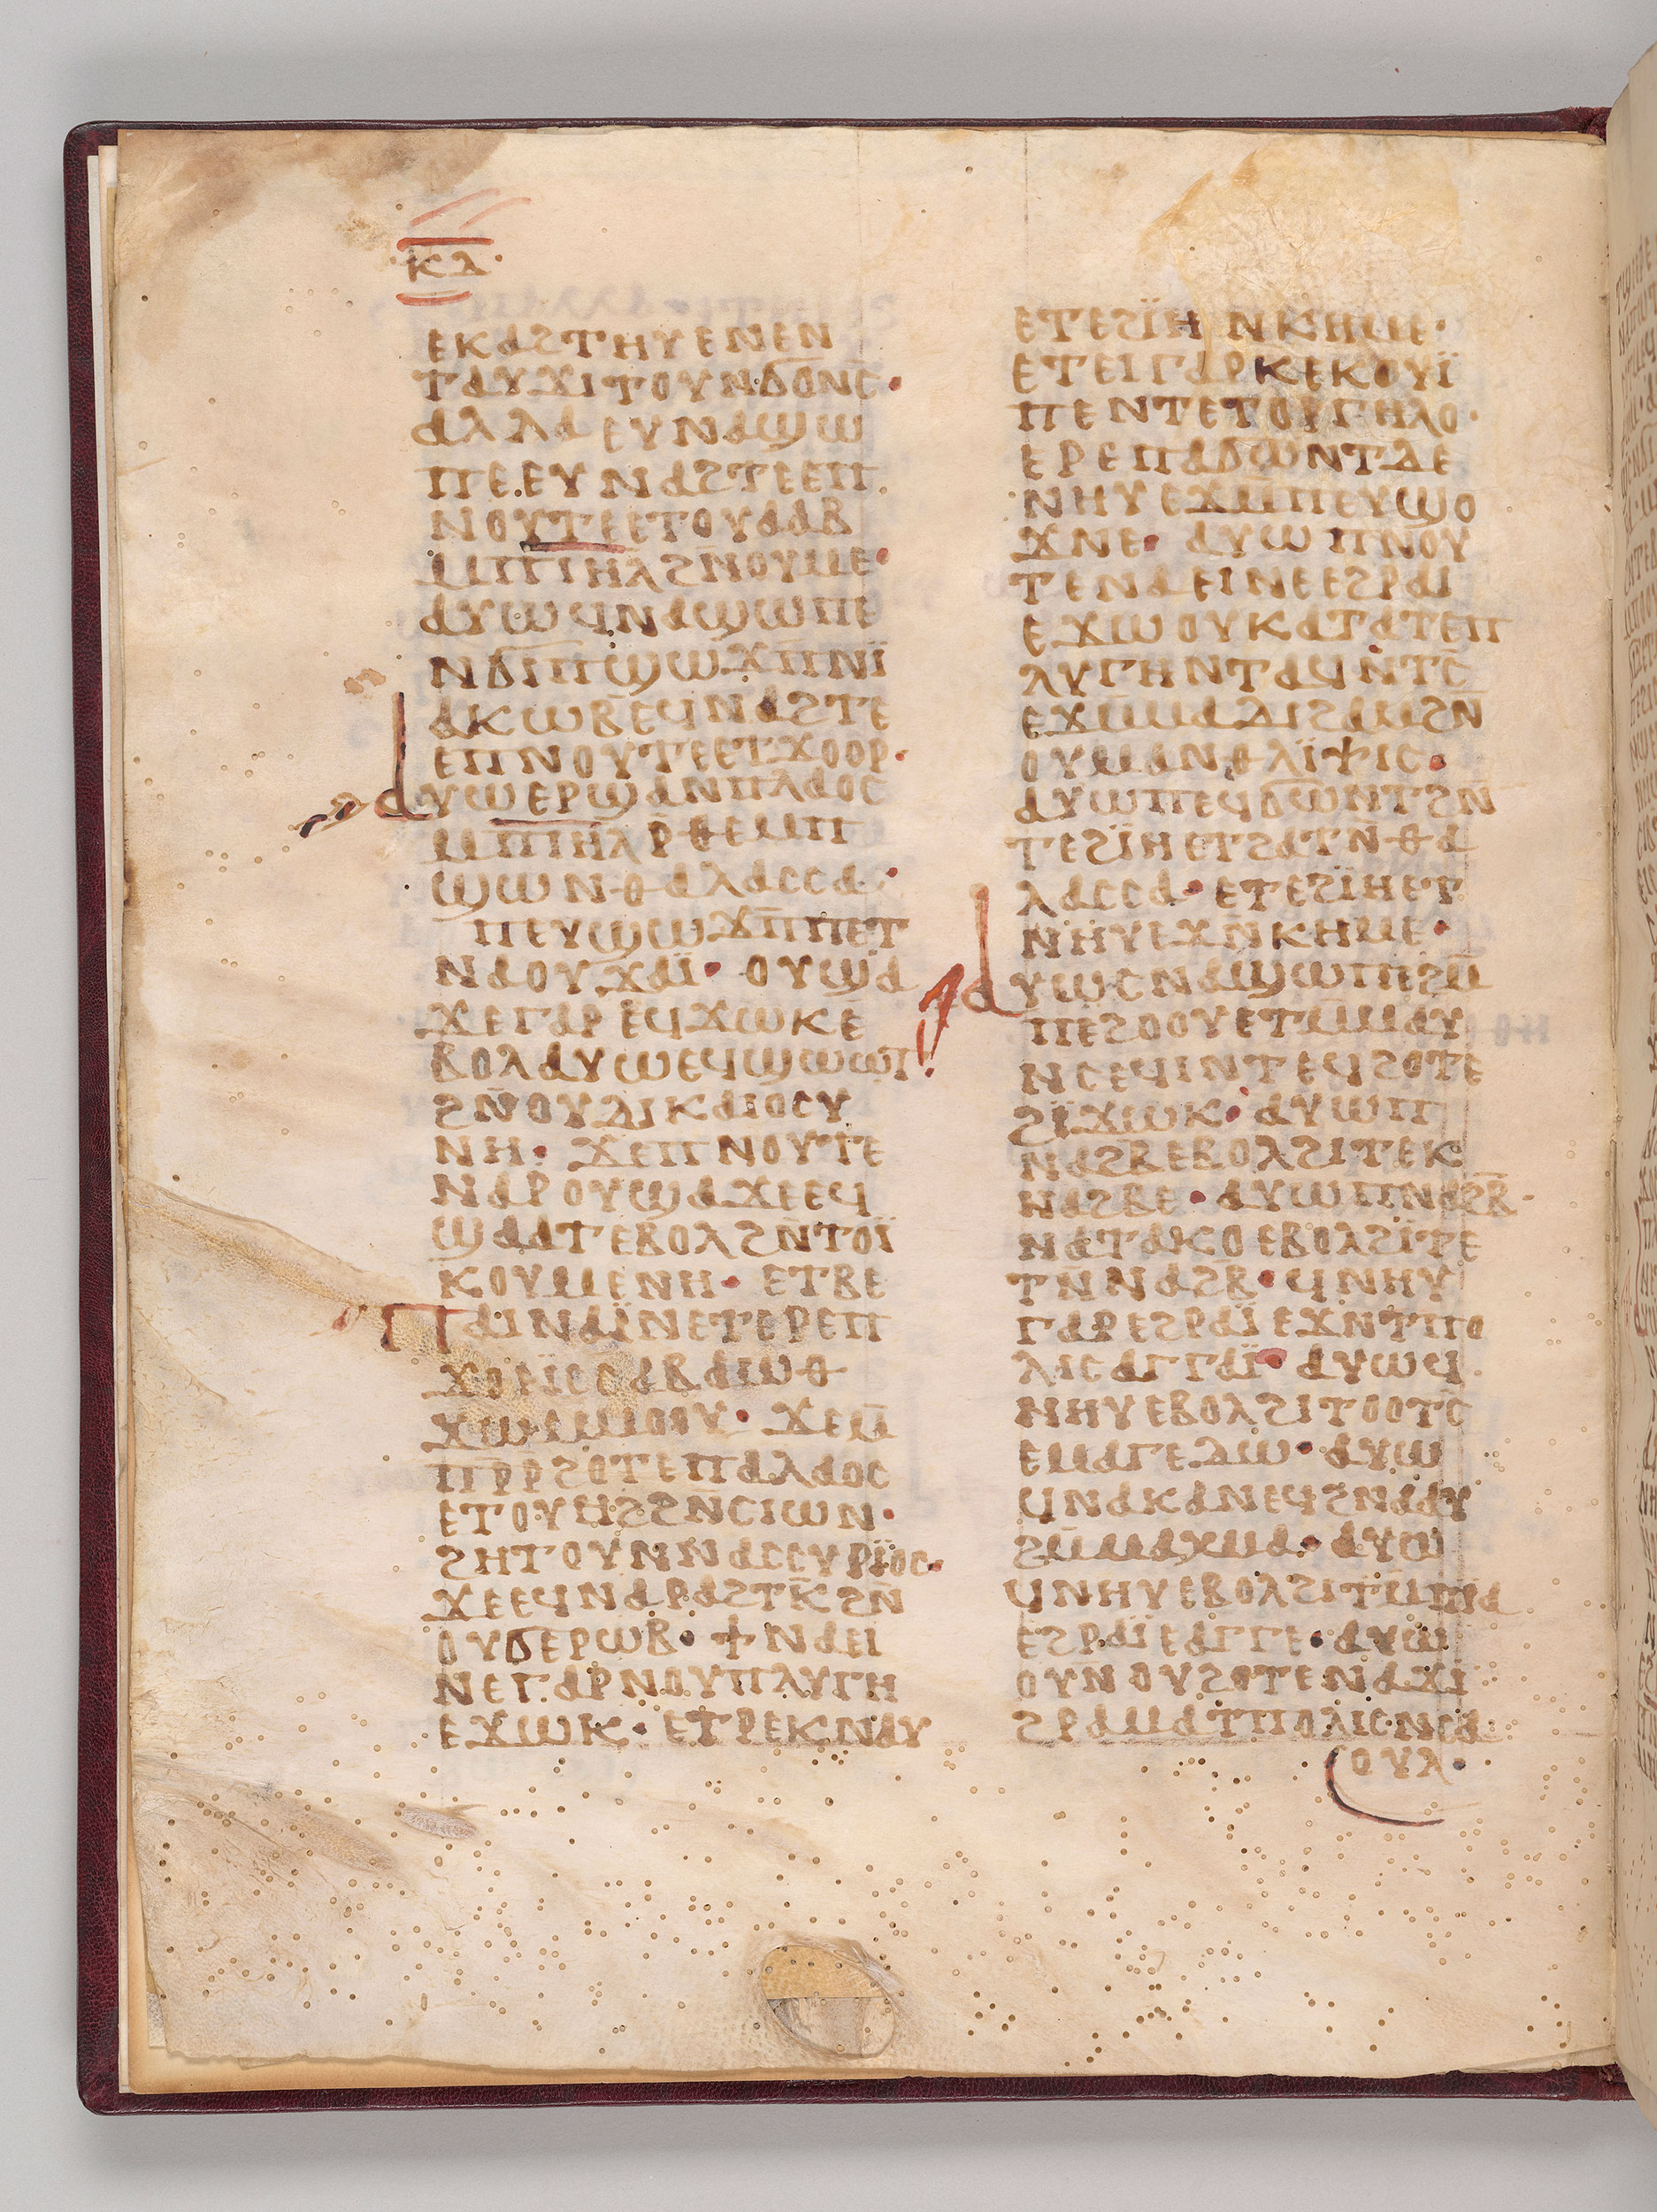 ⲕⲇ
ⲉⲕⲁϩⲧⲏⲩⲉⲛⲉⲛ
ⲧⲁⲩϫⲓⲧⲟⲩⲛϭⲟⲛⲥ̄·
ⲁⲗⲗⲁⲉⲩⲛⲁϣⲱ
ⲡⲉ·ⲉⲩⲛⲁϩⲧⲉⲉⲡ
ⲛⲟⲩⲧⲉⲉⲧⲟⲩⲁⲁⲃ
ⲙ̄ⲡⲓⲏⲗϩⲛ̄ⲟⲩⲙⲉ·
ⲁⲩⲱϥⲛⲁϣⲱⲡⲉ
ⲛϭⲓⲡϣⲱϫⲡ̄ⲛⲓ̈
ⲁⲕⲱⲃ̄ⲉϥⲛⲁϩⲧⲉ
ⲉⲡⲛⲟⲩⲧⲉⲉⲧϫⲟⲟⲣ·
ⲁⲩⲱⲉⲣϣⲁⲛⲡⲗⲁⲟⲥ
ⲙ̄ⲡⲓⲏⲗⲣ̄ⲑⲉⲙ̄ⲡ
ϣⲱⲛⲑⲁⲗⲁⲥⲥⲁ·
ⲡⲉⲩϣⲱϫⲡ̄ⲡⲉⲧ
ⲛⲁⲟⲩϫⲁⲓ̈· ⲟⲩϣⲁ
ϫⲉⲅⲁⲣⲉϥϫⲱⲕⲉ
ⲃⲟⲗⲁⲩⲱⲉϥϣⲱⲱⲧ
ϩⲛ̄ⲟⲩⲇⲓⲕⲁⲓⲟⲥⲩ
ⲛⲏ· ϫⲉⲡⲛⲟⲩⲧⲉ
ⲛⲁⲣⲟⲩϣⲁϫⲉⲉϥ
ϣⲁⲁⲧⲉⲃⲟⲗϩⲛ̄ⲧⲟⲓ̈
ⲕⲟⲩⲙⲉⲛⲏ· ⲉⲧⲃⲉ
ⲡⲁⲓⲛⲁⲓ̈ⲛⲉⲧⲉⲣⲉⲡ
ϫⲟⲉⲓⲥⲥⲁⲃⲁⲱⲑ
ϫⲱⲙ̄ⲙⲟⲟⲩ· ϫⲉⲙ̄
ⲡⲣ̄ⲣ̄ϩⲟⲧⲉⲡⲁⲗⲁⲟⲥ
ⲉⲧⲟⲩⲏϩϩⲛ̄ⲥⲓⲱⲛ·
ϩⲏⲧⲟⲩⲛ̄ⲛⲁⲥⲥⲩⲣⲓ̈ⲟⲥ·
ϫⲉⲉϥⲛⲁⲣⲁϩⲧⲕ̄ϩⲛ̄
ⲟⲩϭⲉⲣⲱⲃ̄· ϯⲛⲁⲉⲓ
ⲛⲉⲅⲁⲣⲛⲟⲩⲡⲗⲩⲅⲏ
ⲉϫⲱⲕ· ⲉⲧⲣⲉⲕⲛⲁⲩ
ⲉⲧⲉϩⲓ̈ⲏ ⲛⲕⲏⲙⲉ·
ⲉⲧⲉⲓⲅⲁⲣⲕⲉⲕⲟⲩⲓ̈
ⲡⲉⲛⲧⲉⲧⲟⲣⲅⲏⲗⲟ·
ⲉⲣⲉⲡⲁϭⲱⲛⲧⲇⲉ
ⲛⲏⲩⲉϫⲙ̄ⲡⲉⲩϣⲟ
ϫⲛⲉ· ⲁⲩⲱ ⲡⲛⲟⲩ
ⲧⲉⲛⲁⲉⲓⲛⲉⲉϩⲣⲁⲓ
ⲉϫⲱⲟⲩⲕⲁⲧⲁⲧⲉⲡ
ⲗⲩⲅⲏⲛⲧⲁϥⲛⲧⲥ̄
ⲉϫⲙ̄ⲙⲁⲇⲓϩⲁⲙϩⲛ̄
ⲟⲩⲙⲁⲛⲑⲗⲓ̈ⲯⲓⲥ·
ⲁⲩⲱⲡⲉϥϭⲱⲛⲧϩⲛ̄
ⲧⲉϩⲓ̈ⲏⲉⲧϩⲁⲧⲛ̄ⲑⲁ
ⲗⲁⲥⲥⲁ· ⲉⲧⲉϩⲓ̈ⲏⲉⲧ
ⲛⲏⲩⲉϫⲛ̄ⲕⲏⲙⲉ·
ⲁⲩⲱⲥⲛⲁϣⲱⲡⲉϩⲙ̄
ⲡⲉϩⲟⲟⲩⲉⲧⲙ̄ⲙⲁⲩ
ⲛⲥⲉϥⲓⲛⲧⲉϥϩⲟⲧⲉ
ϩⲓ̈ϫⲱⲕ· ⲁⲩⲱⲡ
ⲛⲁϩⲃⲉⲃⲟⲗϩⲓⲧⲉⲕ
ⲛⲁϩⲃⲉ· ⲁⲩⲱⲡⲛⲁϩⲃ̄
ⲛⲁⲧⲁⲕⲟⲉⲃⲟⲗϩⲓ̈ⲧⲉ
ⲧⲛ̄ⲛⲁϩⲃ̄· ϥⲛⲏⲩ
ⲅⲁⲣⲉϩⲣⲁⲓ̈ⲉϫⲛ̄ⲧⲡⲟ
ⲗⲓⲥⲁⲅⲅⲁⲓ̈· ⲁⲩⲱϥ
ⲛⲏⲩⲉⲃⲟⲗϩⲓⲧⲟⲟⲧⲥ̄
ⲉⲙⲁⲅⲉⲇⲱ· ⲁⲩⲱ
ϥⲛⲁⲕⲁⲛⲉϥϩⲛⲁⲁⲩ
ϩⲙ̄ⲙⲁⲭⲙⲁ· ⲁⲩⲱ
ϥⲛⲏⲩⲉⲃⲟⲗϩⲓⲧⲙ̄ⲡⲓⲁ
ⲉϩⲣⲁⲓ̈ⲉⲁⲅⲅⲉ· ⲁⲩⲱ
ⲟⲩⲛⲟⲩϩⲟⲧⲉⲛⲁϫⲓ
ϩⲣⲁⲙⲁⲧⲡⲟⲗⲓⲥⲛⲥⲁ
ⲟⲩⲗ·